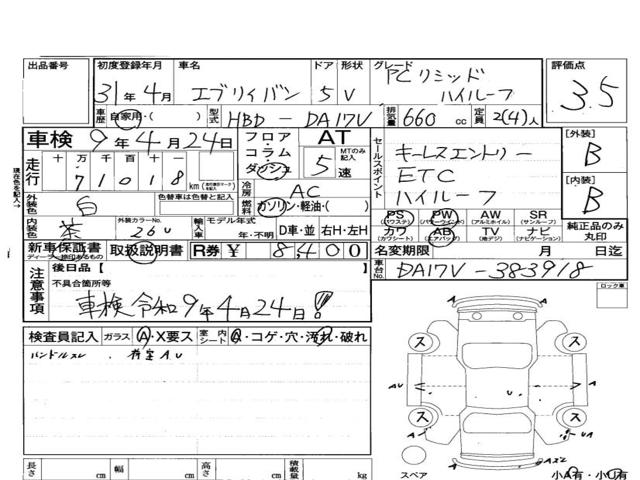 出品番号
初度登録年月 車名 ドア 形状 グレード 評価点
31年4月 エブリイバン 5 V PCリミテッド ハイルーフ 3.5
車歴 自家用・( ) 型式 HBD-DA17V 排気量 660 cc 定員 2(4)人
車検 9年4月24日 フロア・コラム・ダッシュ AT 5速 MTのみ記入
走行 十 万 千 百 十 一
7 1 0 1 8 km
セールスポイント
キーレスエントリー
ETC
ハイルーフ
[外装] B
[内装] B
現在色を記入→
外装色 白 色替車は色替と記入
冷房 AC
燃料 ガソリン・軽油・( )
内装色 茶 外装カラーNo. 26U 輸入車 モデル年式 年・不明 D車・並 右H・左H
PS (パワステ) PW (パワーウインド) AW (アルミホイル) SR (サンルーフ)
カワ (カワシート) AB (エアバッグ) TV (地デジ) ナビ (ナビゲーション)
純正品のみ丸印
新車保証書 取扱説明書 R券 ¥ 8,400
名変期限 月 日迄
車台No. DA17V-383918
注意事項
後日品 [ ]
不具合箇所等
車検 令和9年4月24日!
ロック車
検査員記入 ガラス A・X要ス 室内シート Q・コゲ・穴・汚れ・破れ
ハンドルスレ
ス ス
AU A U A
ス ス
A UA
スペア
長さ cm 幅 cm 高さ cm 積載量 kg
小A有・小U有